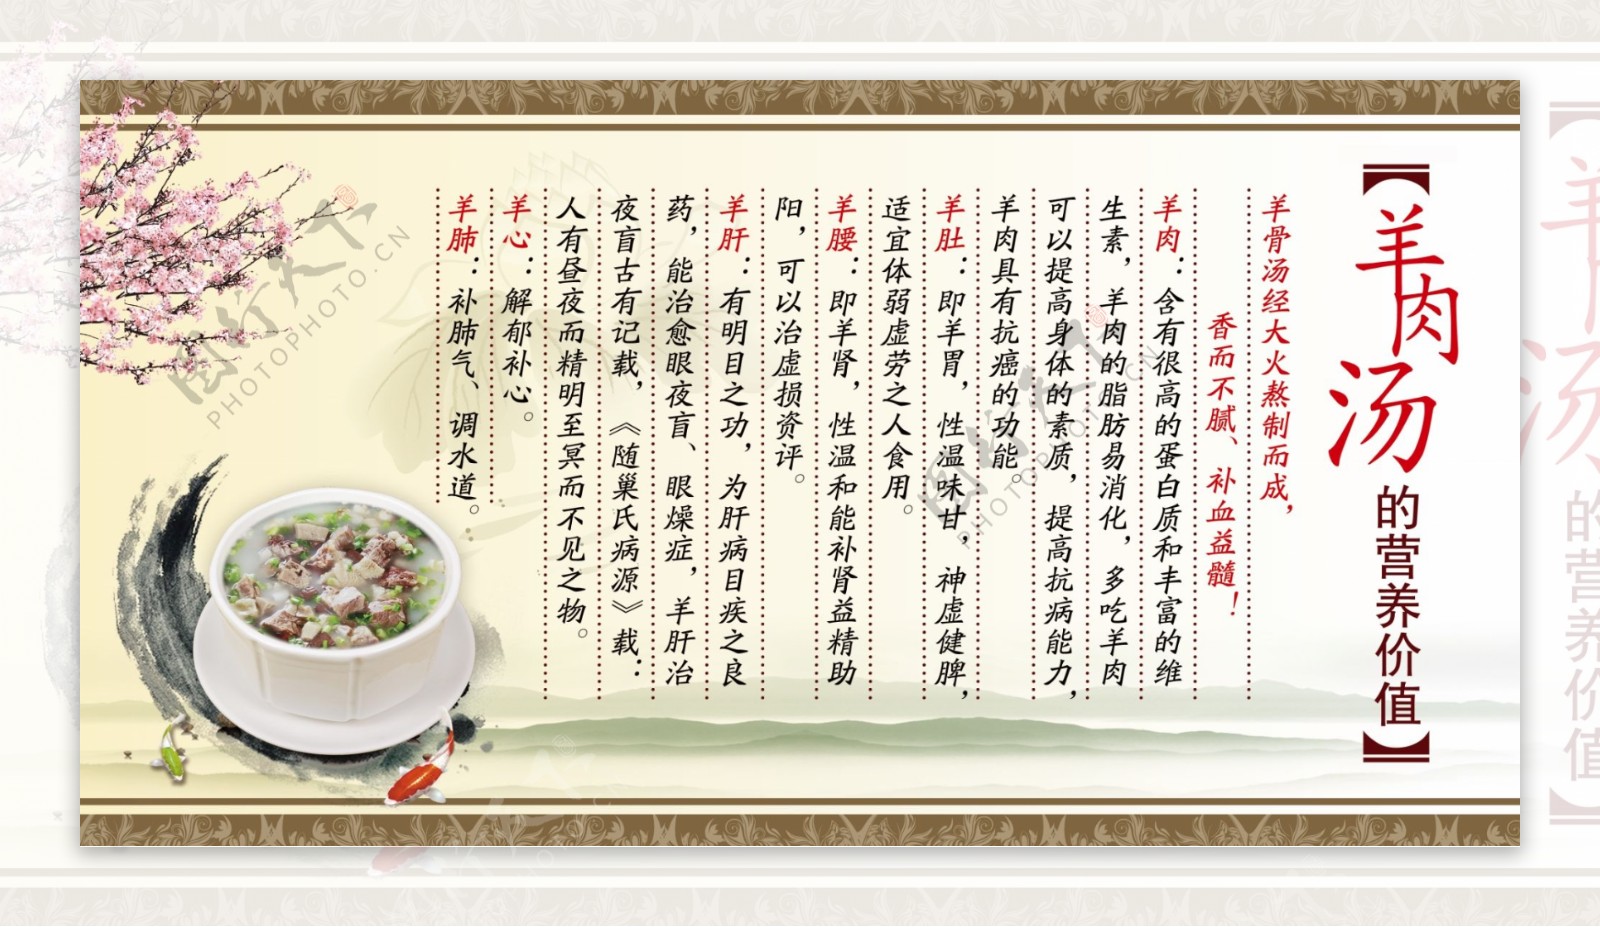 【羊肉汤的营养价值】
羊骨汤经大火熬制而成，
香而不腻、补血益髓！
羊肉：含有很高的蛋白质和丰富的维
生素，羊肉的脂肪易消化，多吃羊肉
可以提高身体的素质，提高抗病能力，
羊肉具有抗癌的功能。
羊肚：即羊胃，性温味甘，神虚健脾，
适宜体弱虚劳之人食用。
羊腰：即羊肾，性温和能补肾益精助
阳，可以治虚损资评。
羊肝：有明目之功，为肝病目疾之良
药，能治愈眼夜盲、眼燥症，羊肝治
夜盲古有记载，《随巢氏病源》载：
人有昼夜而精明至冥而不见之物。
羊心：解郁补心。
羊肺：补肺气、调水道。
图行天下
PHOTOPHOTO.CN
图行天下
PHOTOPHOTO.CN
羊肉汤的营养价值】